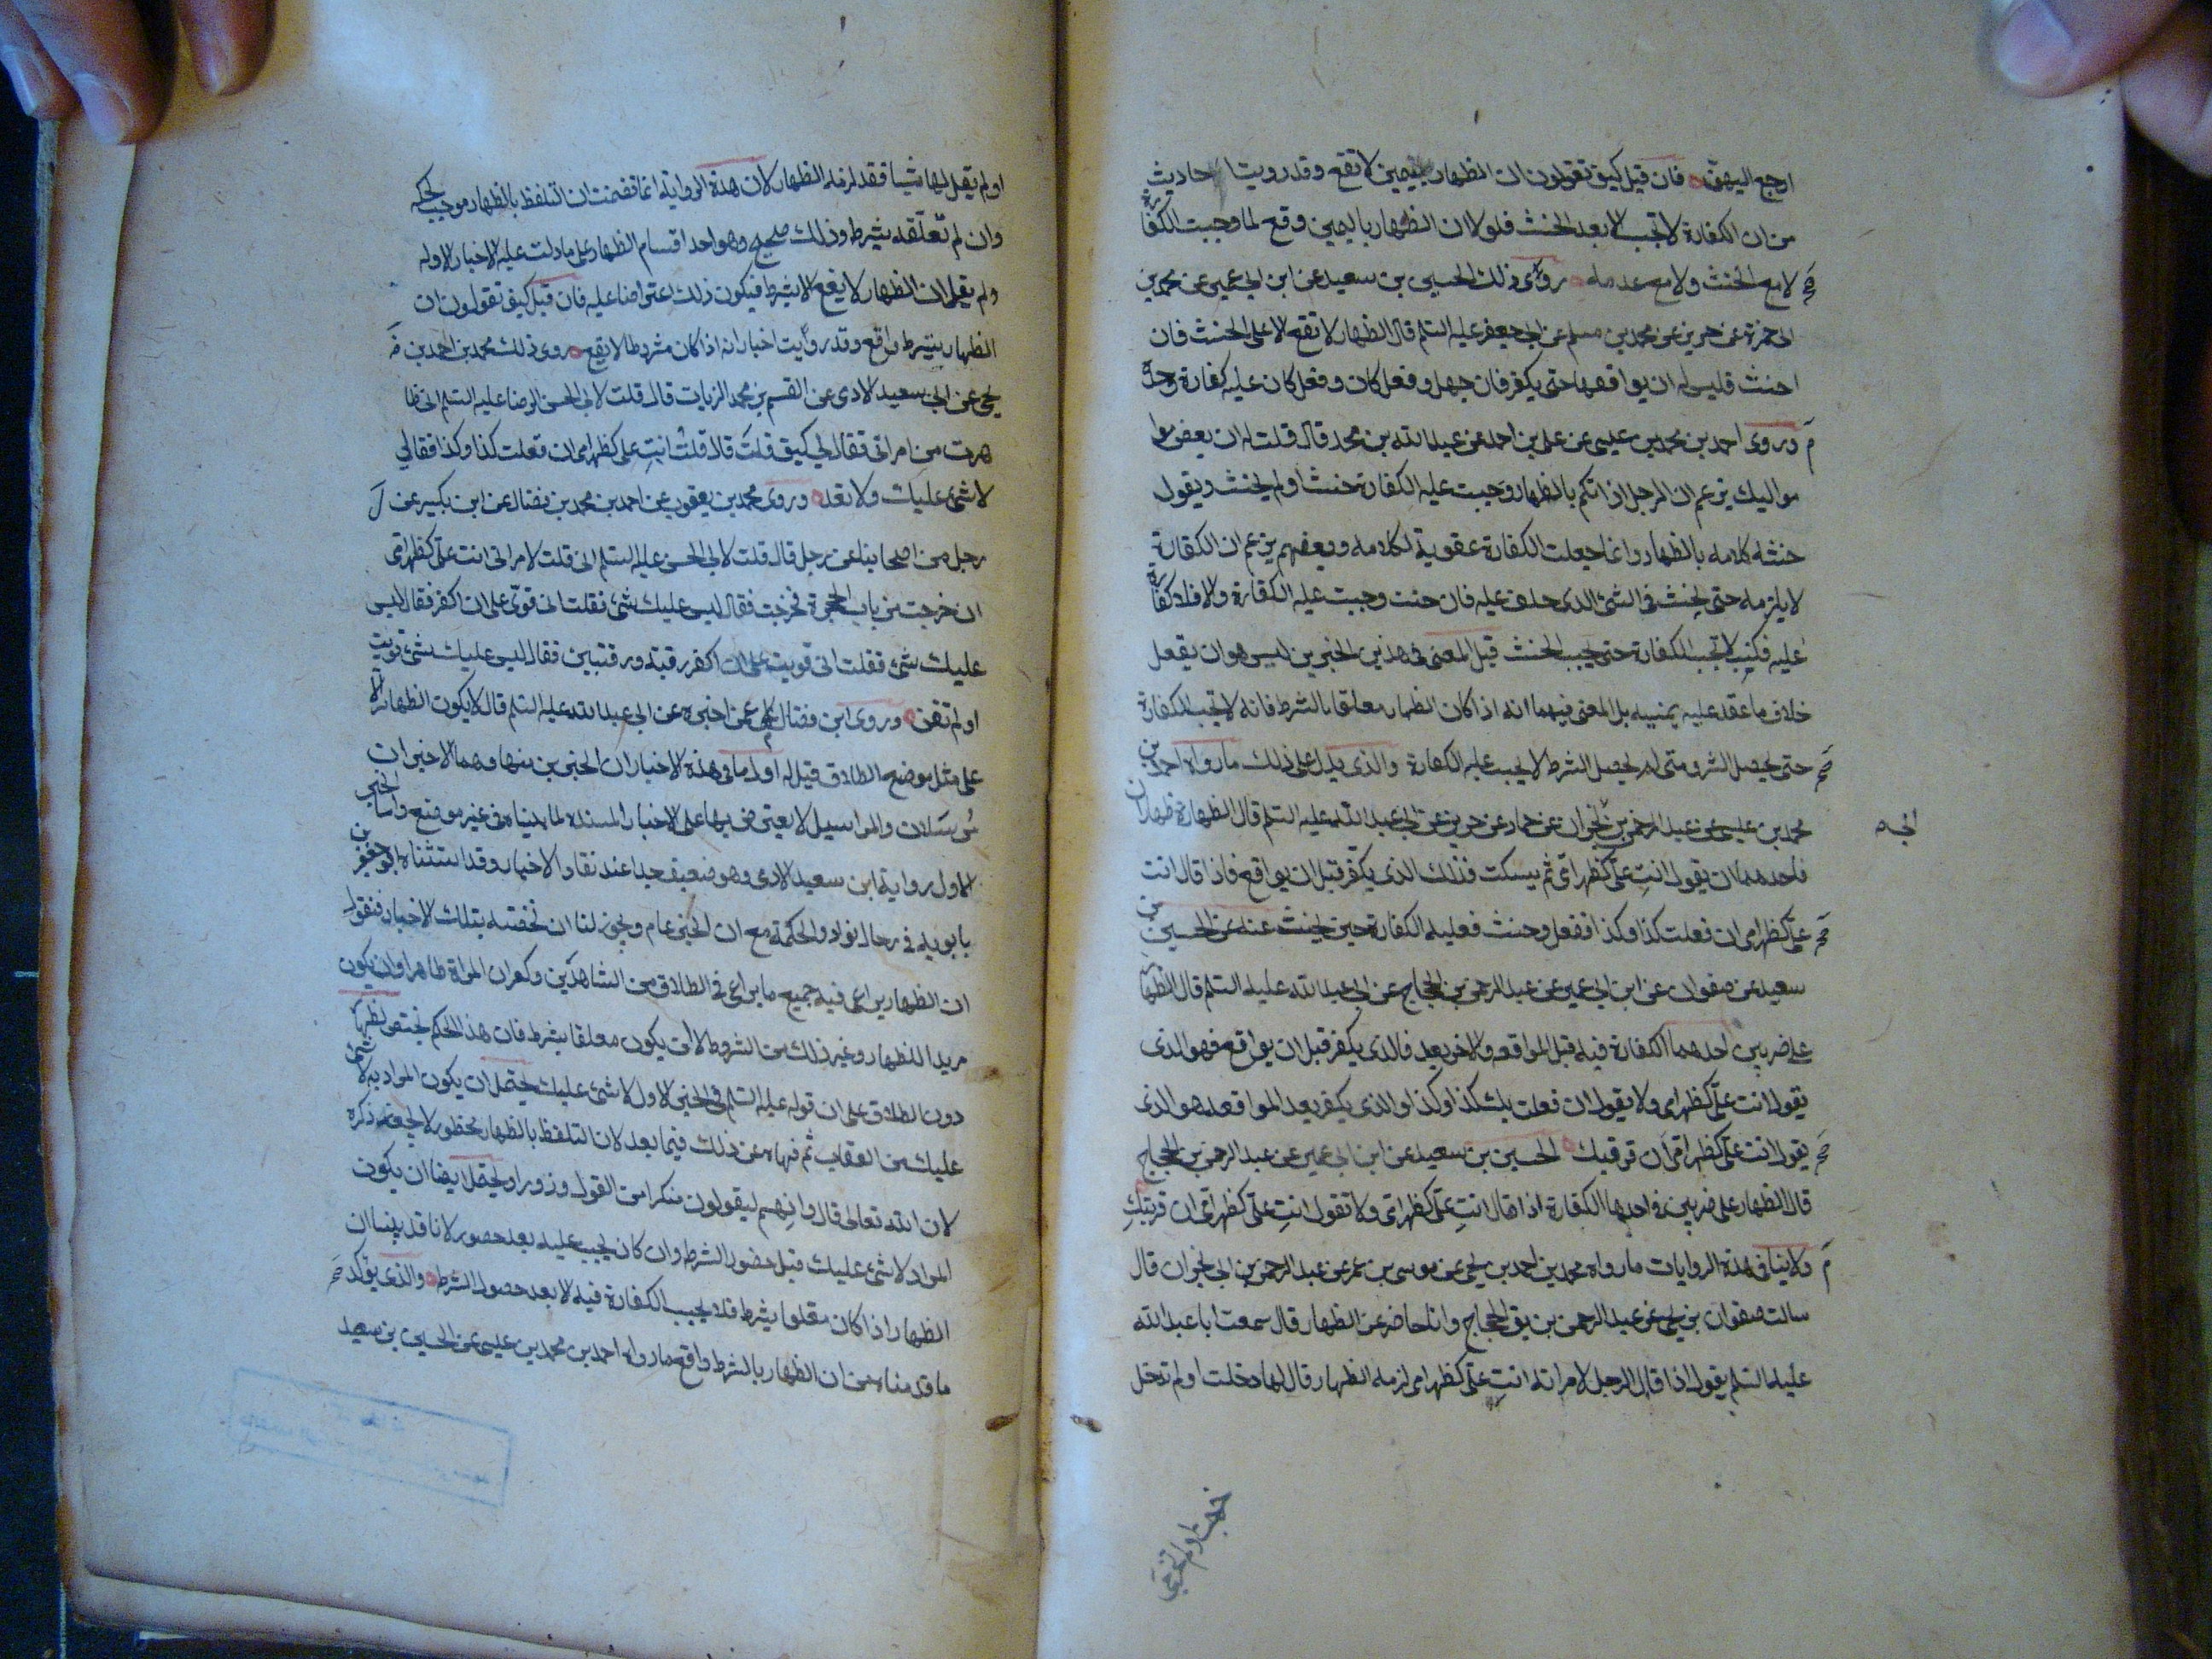 ارجع اليهن فان قيل كيف تقولون ان الظهار بيمين لا تقع وقد رويتا احاديث
من ان الكفارة لا تجب الا بعد الحنث فلولا ان الظهار باليمين وقع لما وجبت الكفارة
لا مع الحنث ولا مع عدمه روى ذلك الحسين بن سعيد عن ابن ابي عمير عن محمد بن
ابى حمزة عن حريز عن محمد بن مسلم عن ابي جعفر عليه السلم قال الظهار لا تقع الا على الحنث فان
احنث فليس له ان يواقعها حتى يكفر فان جهل وفعل كان وفعل كان عليه كفارة واحدة
م وروى احمد بن محمد بن عيسى عن على بن احمد عن عبد الله بن محمد قال قلت له ان بعض
مواليك يزعم ان الرجل اذا تكلم بالظهار وجبت عليه الكفارة حنث او لم يحنث ويقول
حنثه كلامه بالظهار وانما جعلت الكفارة عقوبة لكلامه وبعضهم يزعم ان الكفارة
لا يلزمه حتى يحنث في الشئ الذى حلف عليه فان حنث وجبت عليه الكفارة والا فلا كفارة
عليه فكتب لا تجب الكفارة حتى يجب الحنث قيل المعنى في هذين الخبرين ليس هو ان يفعل
خلاف ما عقد عليه يمينه بل المعنى فيهما انه اذا كان الظهار معلقا بالشرط فانه لا تجب الكفارة
حتى يحصل الشرط ومتى لم يحصل الشرط لا يجب عليه الكفارة والذى يدل على ذلك ما رواه احمد بن
محمد بن عيسى عن عبد الرحمن بن نجران عن حماد عن حريز عن ابي عبد الله عليه السلم قال الظهار ظهاران
فاحدهما ان يقول انت على كظهر امى ثم يسكت فذلك الذى يكفر قبل ان يواقع فاذا قال انت
على كظهر امى ان فعلت كذا وكذا ففعل وحنث فعليه الكفارة حين يحنث عنه عن الحسين بن
سعيد عن صفوان عن ابن ابي عمير عن عبد الرحمن بن الحجاج عن ابى عبد الله عليه السلم قال الظهار
على ضربين احدهما الكفارة فيه قبل المواقعه والاخر بعد فالذى يكفر قبل ان يواقع فهو الذى
يقول انت على كظهر امى ولا يقول ان فعلت بك كذا وكذا والذى يكفر بعد المواقعه هو الذى
يقول انت على كظهر امى ان قربتك الحسين بن سعيد عن ابن ابي عمير عن عبد الرحمن بن الحجاج
قال الظهار على ضربين في احدهما الكفارة اذا قال انت على كظهر امى ولا تقول انت على كظهر امى ان قربتك
م ولا ينافى هذه الروايات ما رواه محمد بن احمد بن يحيى عن موسى بن عمر عن عبد الرحمن بن ابي نجران قال
سالت صفوان بن يحيى عن عبد الرحمن بن الحجاج وانا حاضر عن الظهار قال سمعت ابا عبد الله
عليه السلم يقول اذا قال الرجل لامراته انت على كظهر امى لزمه الظهار قال لها دخلت او لم تدخل
خرجت او لم تخرجى
او لم يقل لها شيا فقد لزمه الظهار لان هذه الرواية انما تضمنت ان التلفظ بالظهار موجب لحكمه
وان لم تعلقه بشرط وذلك صحيح وهو احد اقسام الظهار على ما دلت عليه الاخبار الاوله
ولم يقل ان الظهار لا يقع الا بشرط فيكون ذلك اعتراضا عليه فان قيل كيف تقولون ان
الظهار بشرط واقع وقد رويت اخبارا انه اذا كان مشروطا لا يقع روى ذلك محمد بن احمد بن
يحيى عن ابى سعيد الادمى عن القسم بن محمد الزيات قال قلت لابى الحسن الرضا عليه السلم انى ظا
هرت من امراتى فقال لي كيف قلت قال قلت انت على كظهر امى ان فعلت كذا وكذا فقال لي
لا شئ عليك ولا تعد وروى محمد بن يعقوب عن احمد بن محمد بن فضال عن ابن بكير عن
رجل من اصحابنا عن رجل قال قلت لابى الحسن عليه السلم انى قلت لامراتى انت على كظهر امى
ان خرجت من باب الحجرة فخرجت فقال ليس عليك شئ فقلت انى قوى على ان اكفر فقال ليس
عليك شئ فقلت انى قويت على ان اكفر رقبة ورقبتين فقال ليس عليك شئ قويت
او لم تقو وروى ابن فضال عمن اخبره عن ابى عبد الله عليه السلم قال لا يكون الظهار الا
على مثل موضع الطلاق قيل له اول ما في هذه الاخبار ان الخبرين منها وهما الاخيران
مرسلان والمراسيل لا يعترض بها على الاخبار المسندة لما بيناه في غير موضع واما الخبر
الاول رواية ابى سعيد الادمى وهو ضعيف جدا عند نقاد الاخبار وقد استثناه ابو جعفر بن
بابويه في رجال نوادر الحكمة مع ان الخبر عام ويجوز لنا ان نخصه بتلك الاخبار فنقول
ان الظهار يراعى فيه جميع ما يراعى في الطلاق من الشاهدين وكون المراة طاهرا وان يكون
مريدا للظهار وغير ذلك من الشروط الا ان يكون معلقا بشرط فان هذا الحكم يختص الظهار
دون الطلاق على ان قوله عليه السلم في الخبر الاول لا شئ عليك يحتمل ان يكون المراد به لا شئ
عليك من العقاب ثم نهاه عن ذلك فيما بعد لان التلفظ بالظهار محظور لا يجوز ذكره
لان الله تعالى قال وانهم ليقولون منكرا من القول وزورا ويحتمل ايضا ان يكون
المراد لا شئ عليك قبل حضور الشرط وان كان يجب عليه بعد حصوره لانا قد بينا ان
الظهار اذا كان معلقا بشرط فلا يجب الكفارة فيه الا بعد حصول الشرط والذى يؤكد
ما قدمناه من ان الظهار بالشرط واقع ما رواه احمد بن محمد بن عيسى عن الحسين بن سعيد